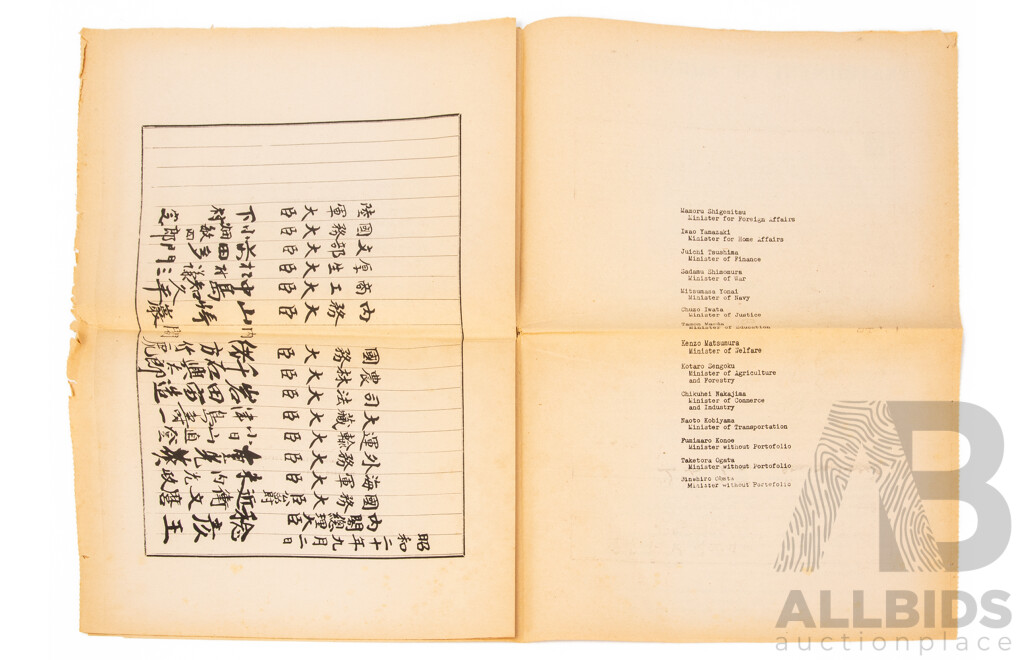 昭和二十年九月二日
内閣總理大臣 稔彦王
國務大臣公爵 近衞文麿
海軍大臣 米内光政
外務大臣 重光葵
運輸大臣 小日山直登
大藏大臣 津島壽一
司法大臣 岩田宙造
農林大臣 千石興太郎
國務大臣 緒方竹虎
内務大臣 山崎巌
商工大臣 中島知久平
厚生大臣 松村謙三
文部大臣 前田多門
國務大臣 小畑敏四郎
陸軍大臣 下村定
Mamoru Shigemitsu
Minister for Foreign Affairs
Iwao Yamazaki
Minister for Home Affairs
Juichi Tsushima
Minister of Finance
Sadamu Shimomura
Minister of War
Mitsumasa Yonai
Minister of Navy
Chuzo Iwata
Minister of Justice
Tamon Maeda
Minister of Education
Kenzo Matsumura
Minister of Welfare
Kotaro Sengoku
Minister of Agriculture
and Forestry
Chikuhei Nakajima
Minister of Commerce
and Industry
Naoto Kobiyama
Minister of Transportation
Fumimaro Konoe
Minister without Portofolio
Taketora Ogata
Minister without Portofolio
Binshiro Obata
Minister without Portofolio
AB
ALLBIDS
auctionplace